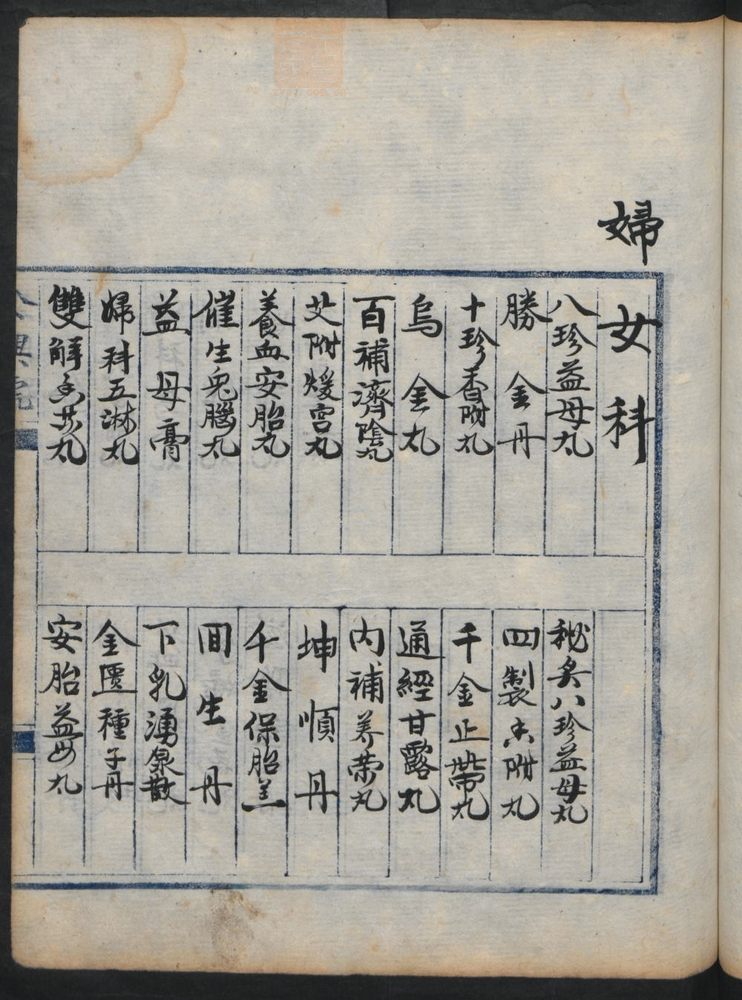 婦女科
八珍益母丸
勝金丹
十珍香附丸
烏金丸
百補濟陰丸
艾附煖宮丸
養血安胎丸
催生兔腦丸
益母膏
婦科五淋丸
雙解香艾丸
秘炙八珍益母丸
四製香附丸
千金止帶丸
通經甘露丸
內補養荣丸
坤順丹
千金保胎羔
囬生丹
下乳湧泉散
金匱種子丹
安胎益母丸